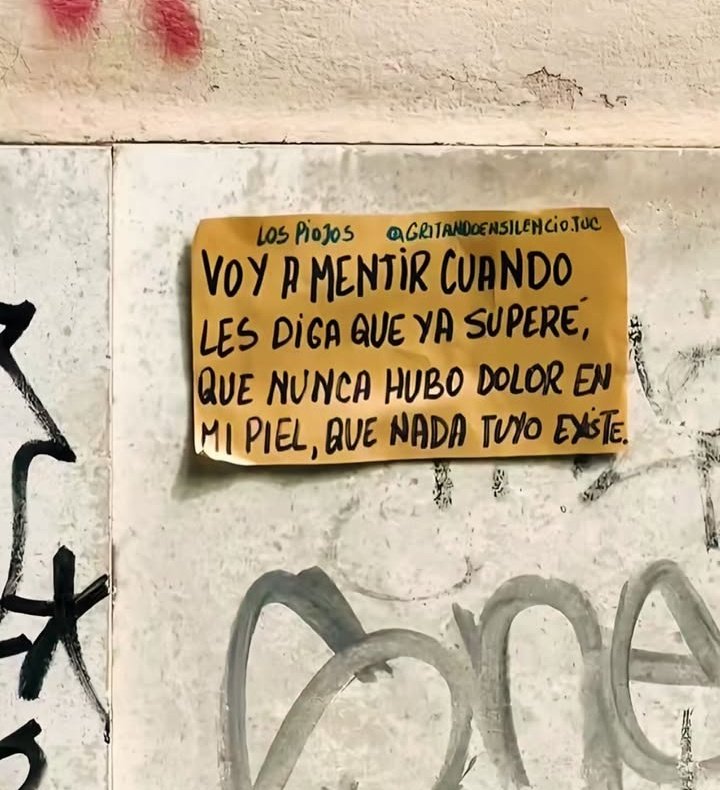 LOS PIOJOS @GRITANDOENSILENCIO.TUC
VOY A MENTIR CUANDO
LES DIGA QUE YA SUPERÉ,
QUE NUNCA HUBO DOLOR EN
MI PIEL, QUE NADA TUYO EXISTE.